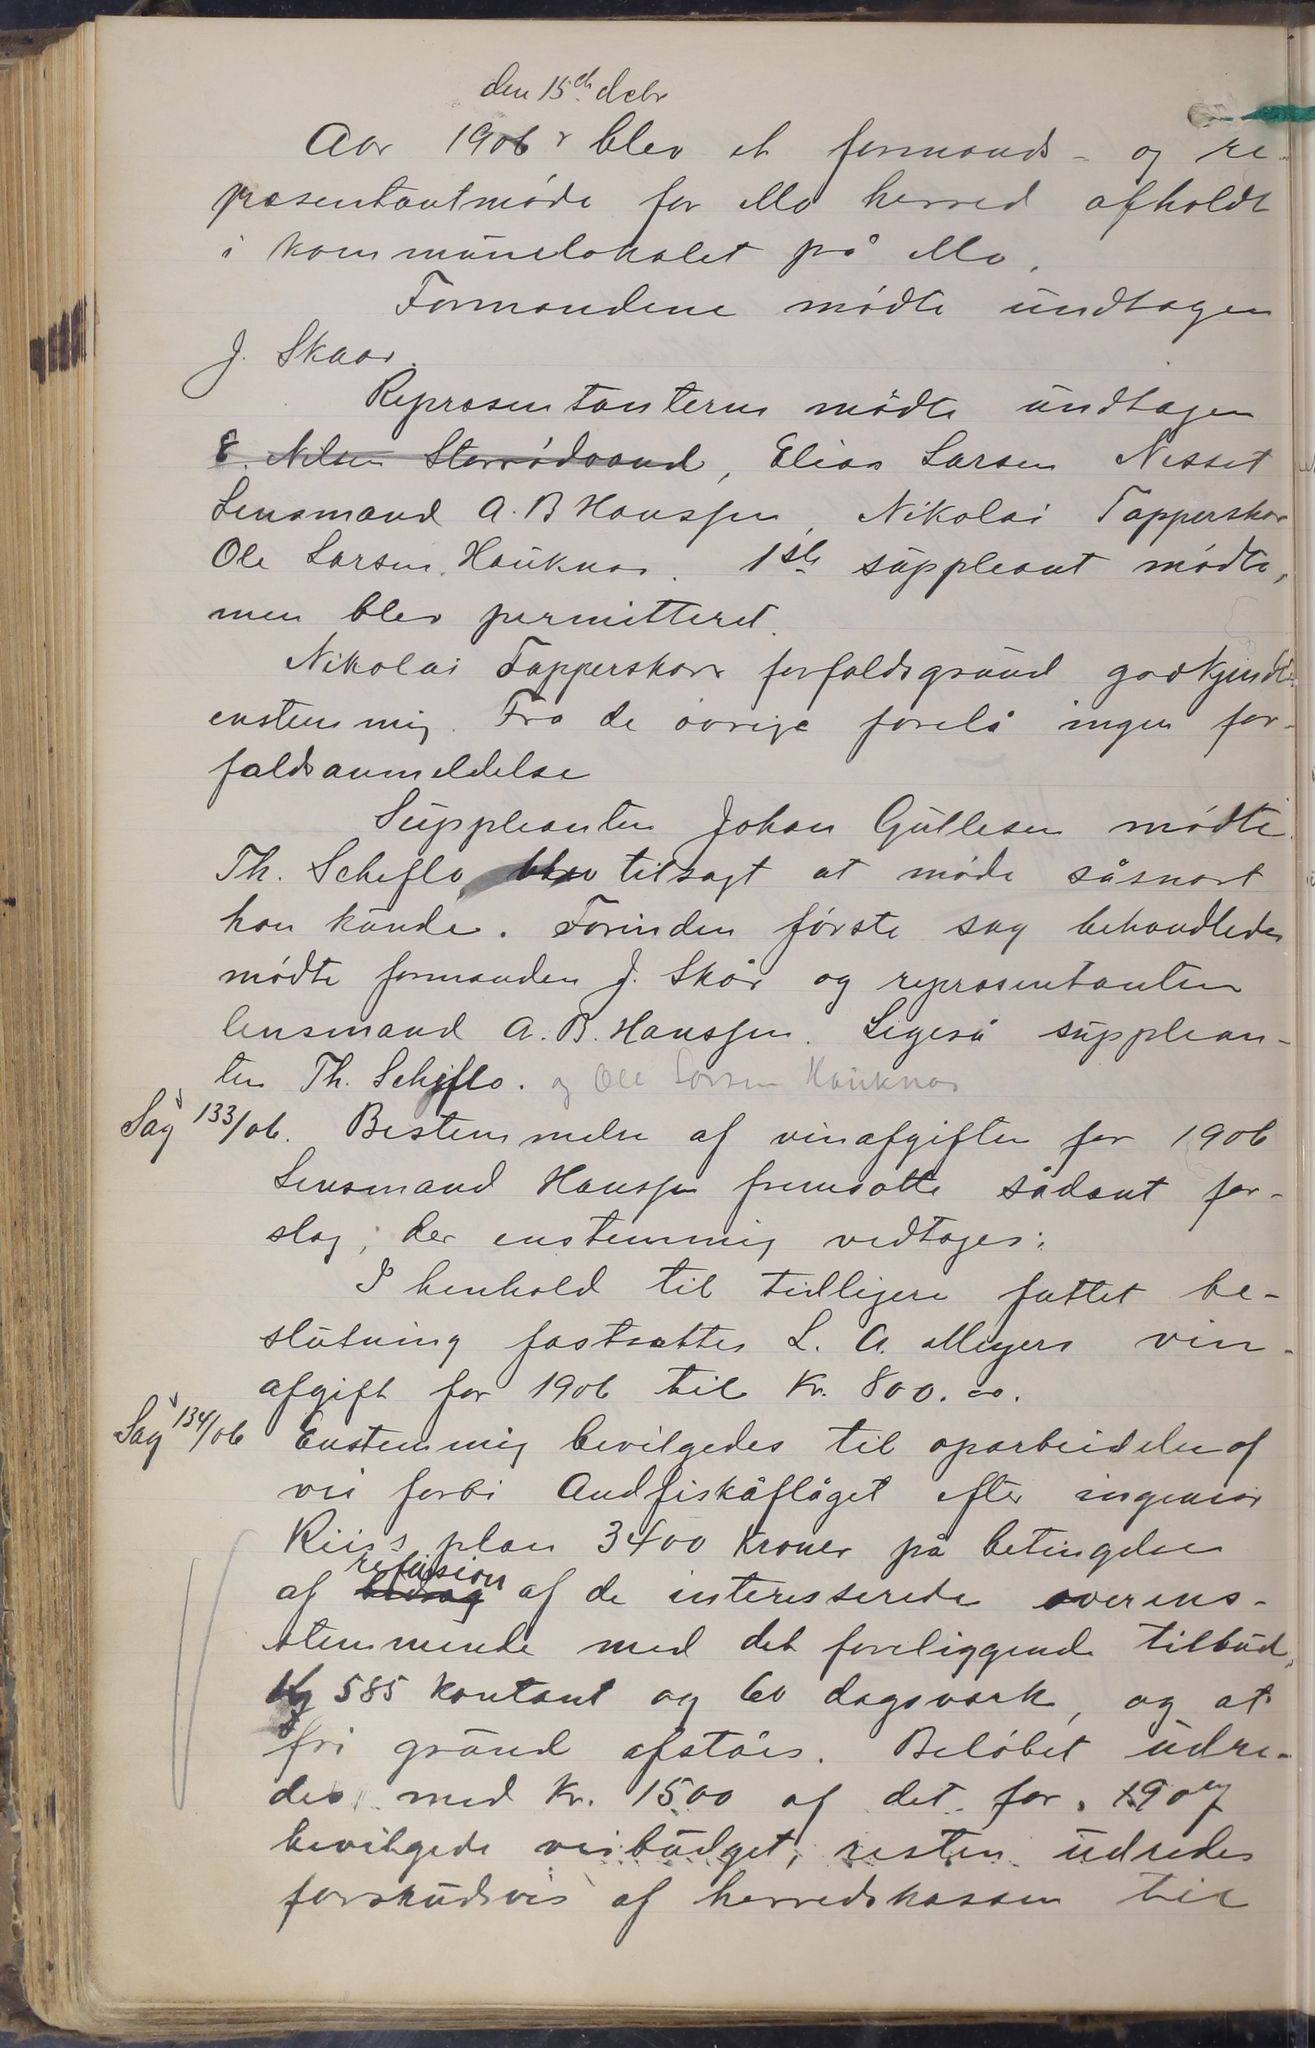 den 15de decbr
Aar 1906 blev et formands- og re-
præsentantmøde for Mo herred afholdt
i kommunelokalet på Mo.
Formændene mødte undtagen
J. Skaar.
Repræsentanterne mødte undtagen
E. Nilsen Storrødvand, Elias Larsen Nesset
Lensmand A. B Hanssen, Nikolai Tapperskar
Ole Larsen, Hauknæs. 1ste suppleant mødte,
men blev permitteret.
Nikolai Tapperskars forfaldsgrund godkjendtes
enstemmig. Fra de øvrige forelå ingen for-
faldsanmeldelse
Suppleanten Johan Gullesen mødte.
Th. Scheflo blev tilsagt at møde såsnart
han kunde. Forinden første sag behandledes
mødte formanden J. Skår og repræsentanten
lensmand A. B. Hanssen. Ligeså supplean-
ten Th. Scheflo. og Ole Larsen Hauknæs
Sag 133/06. Bestemmelse af vinafgiften for 1906
Lensmand Hanssen fremsatte sådant for-
slag, der enstemmig vedtages:
I henhold til tidligere fattet be-
slutning fastsættes L. A. Meyers vin-
afgift for 1906 til kr. 800.00.
Sag 134/06 Enstemmig bevilgedes til oparbeidelse af
vei forbi Andfiskåflåget efter ingeniør
Riis's plan 3400 kroner på betingelse
refusion
af bidrag af de interesserede overens-
stemmende med det foreliggende tilbud,
585 kontant og 60 dagsværk, og at
fri grund afståes. Beløbet udre-
des med kr. 1500 af det for 1907
bevilgede veibudget, resten udredes
forskudsvis af herredskassen til